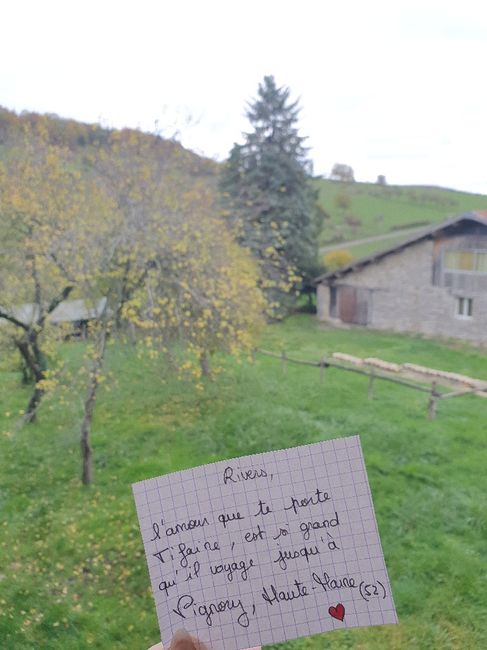 Rivers,
l'amour que te porte
Tifaine, est si grand
qu'il voyage jusqu'à
Vignory, Haute-Marne (52)